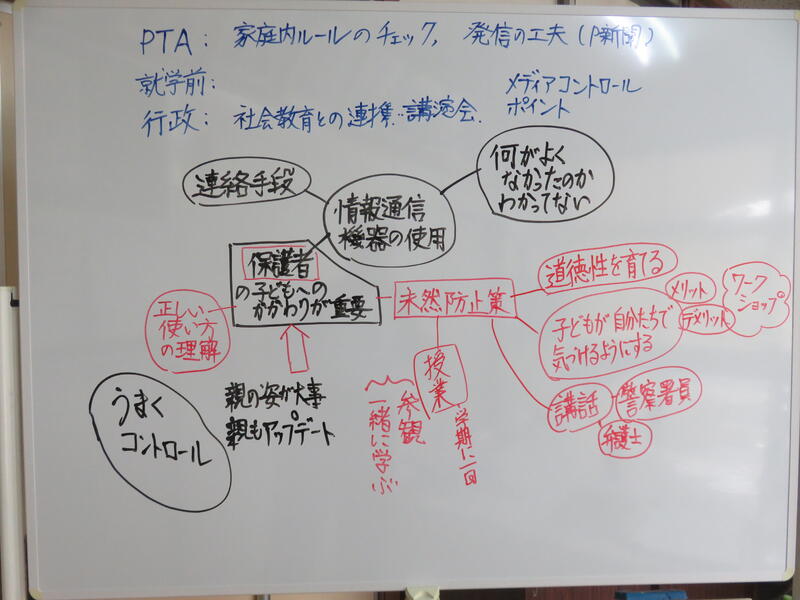 PTA: 家庭内ルールのチェック, 発信の工夫(P新聞)
就学前:
メディアコントロール
ポイント
行政: 社会教育との連携‥講演会.
連絡手段
情報通信
機器の使用
何がよく
なかったのか
わかってない
保護者
の子どもへの
かかわりが重要
正しい
使い方
の理解
未然防止策
道徳性を育てる
子どもが自分たちで
気づけるようにする
メリット
デメリット
ワーク
ショップ
講話
警察署員
弁護士
授業
学期に一回
参観
一緒に学ぶ
親の姿が大事
親もアップデート
うまく
コントロール